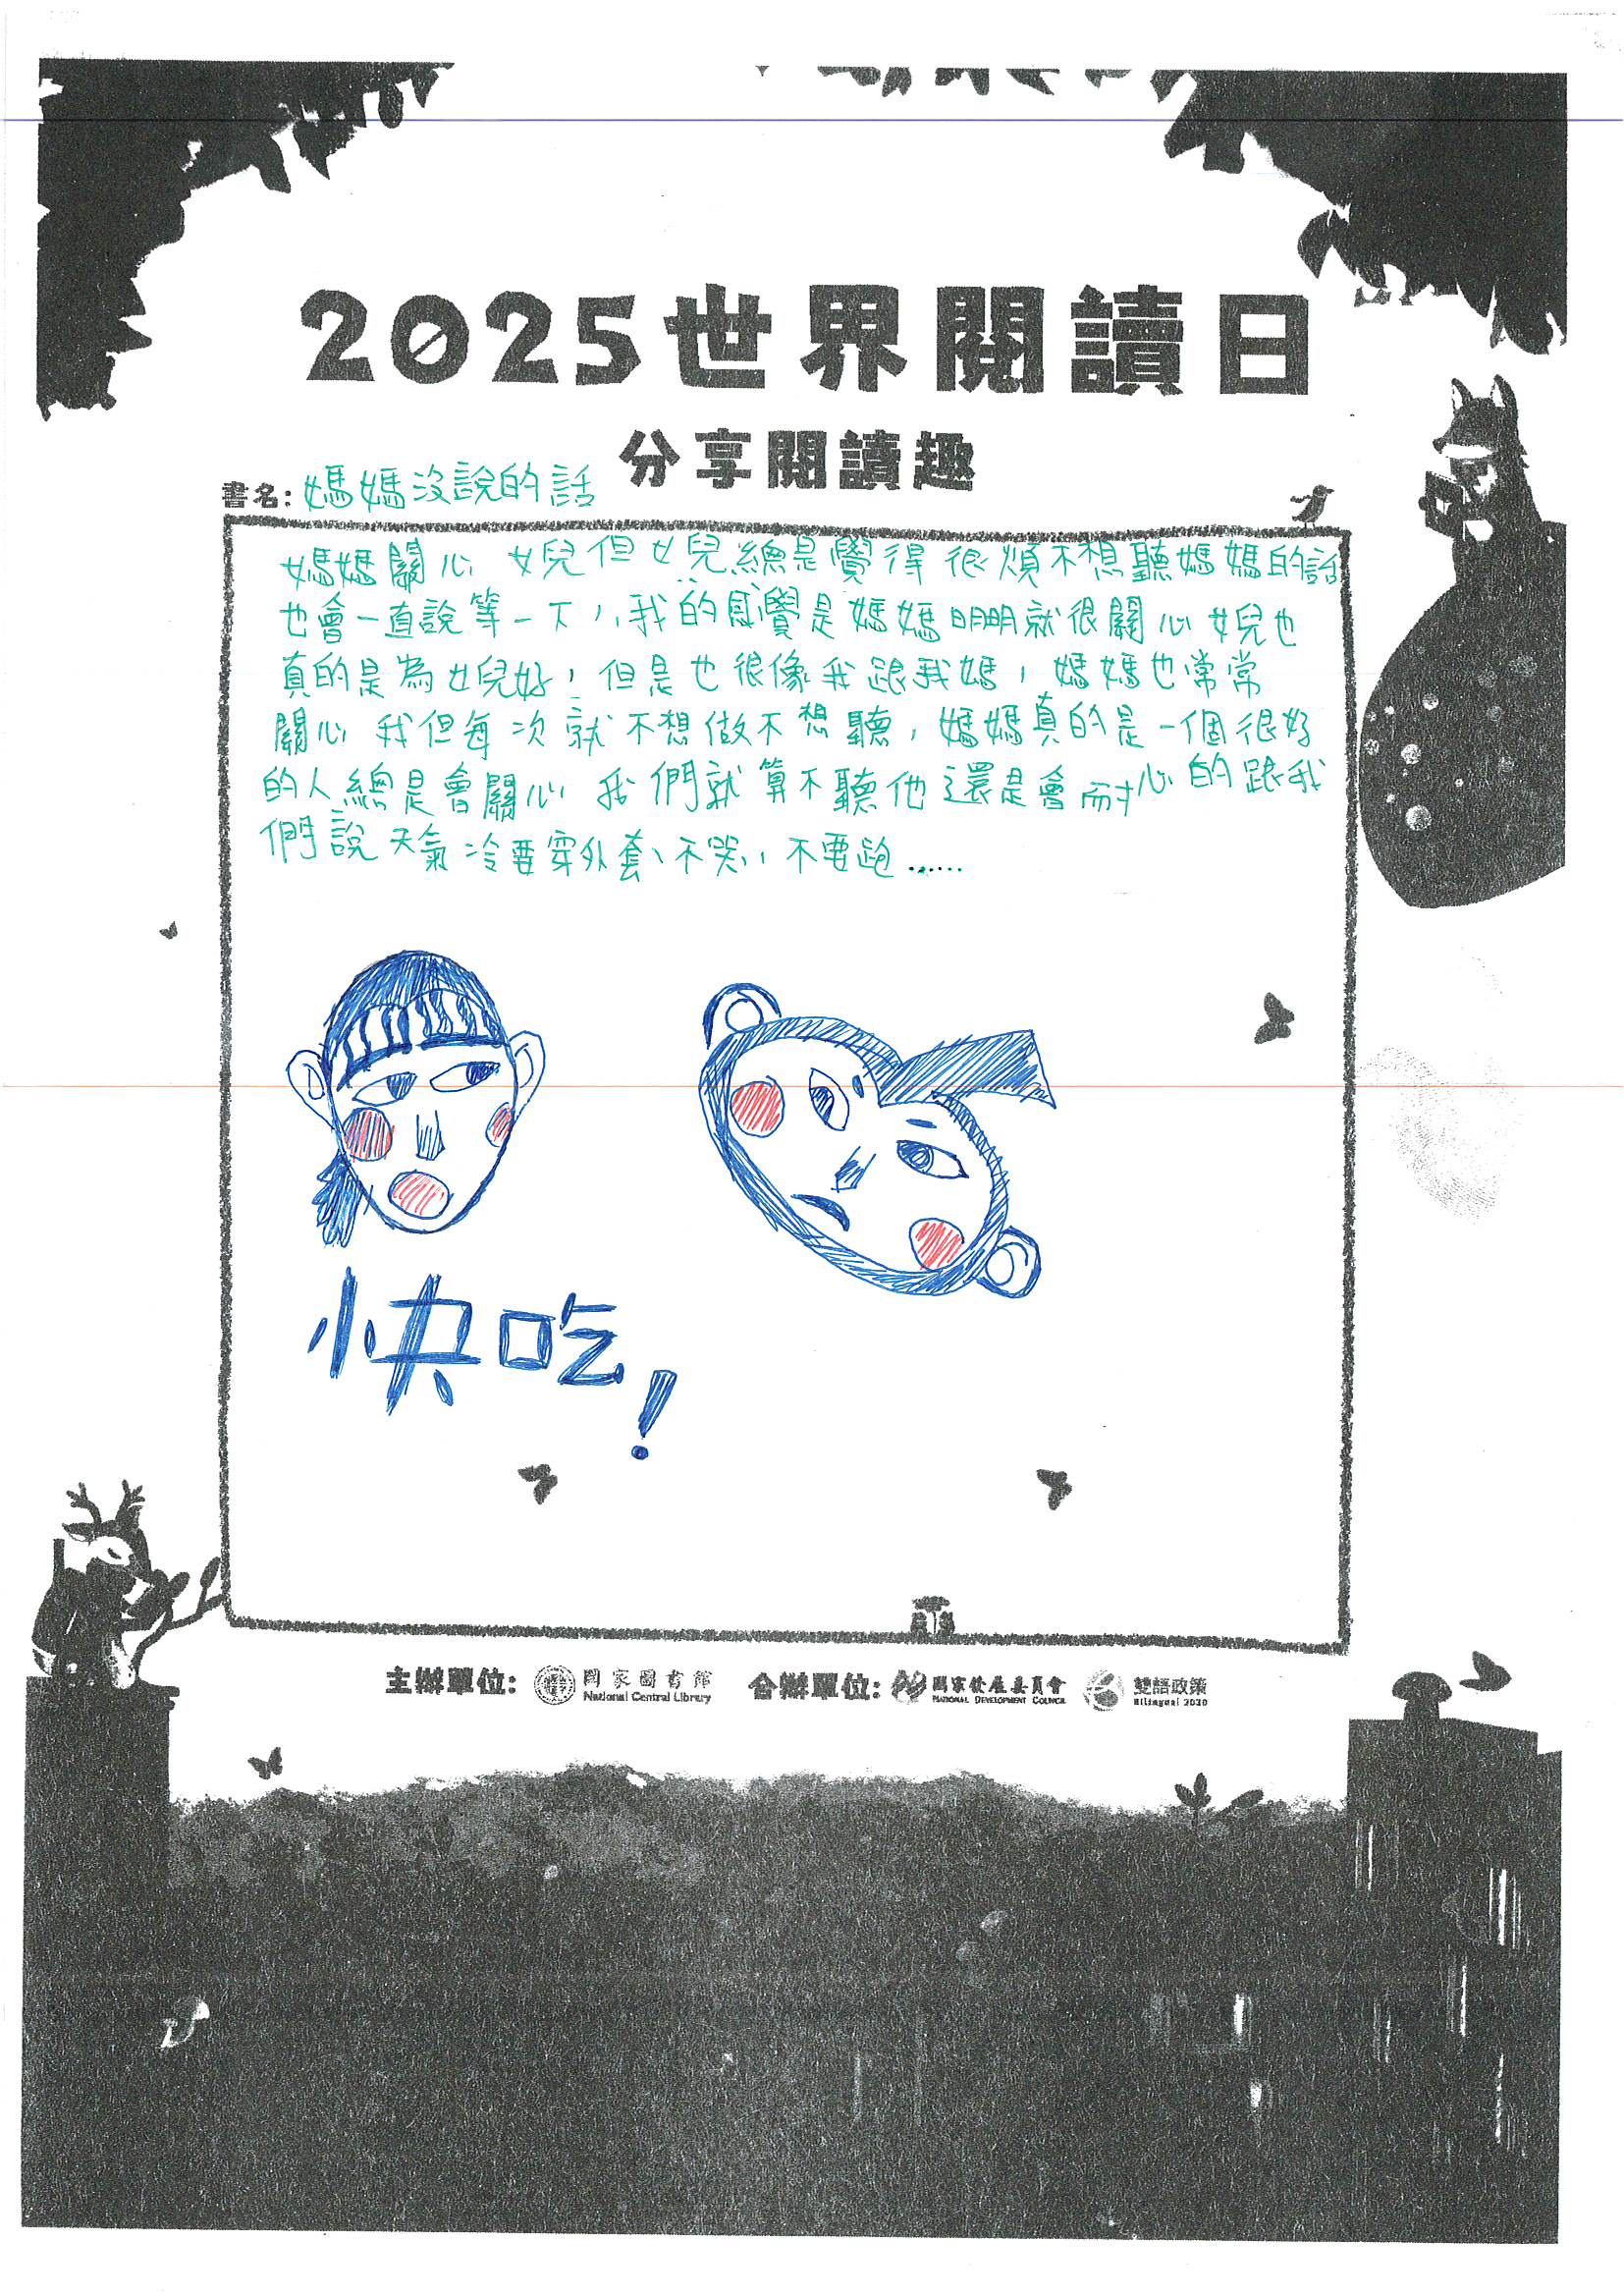 2025世界閱讀日
分享閱讀趣
書名:媽媽沒說的話
媽媽關心女兒但女兒總是覺得很煩不想聽媽媽的話
也會一直說等一下,我的感覺是媽媽明明就很關心女兒也
真的是為女兒好,但是也很像我跟我媽,媽媽也常常
關心我但每次就不想做不想聽,媽媽真的是一個很好
的人總是會關心我們就算不聽他還是會耐心的跟我
們說天氣冷要穿外套、不哭、不要跑……
快吃!
主辦單位: 國家圖書館 National Central Library 合辦單位: 國家發展委員會 NATIONAL DEVELOPMENT COUNCIL 雙語政策 Bilingual 2030